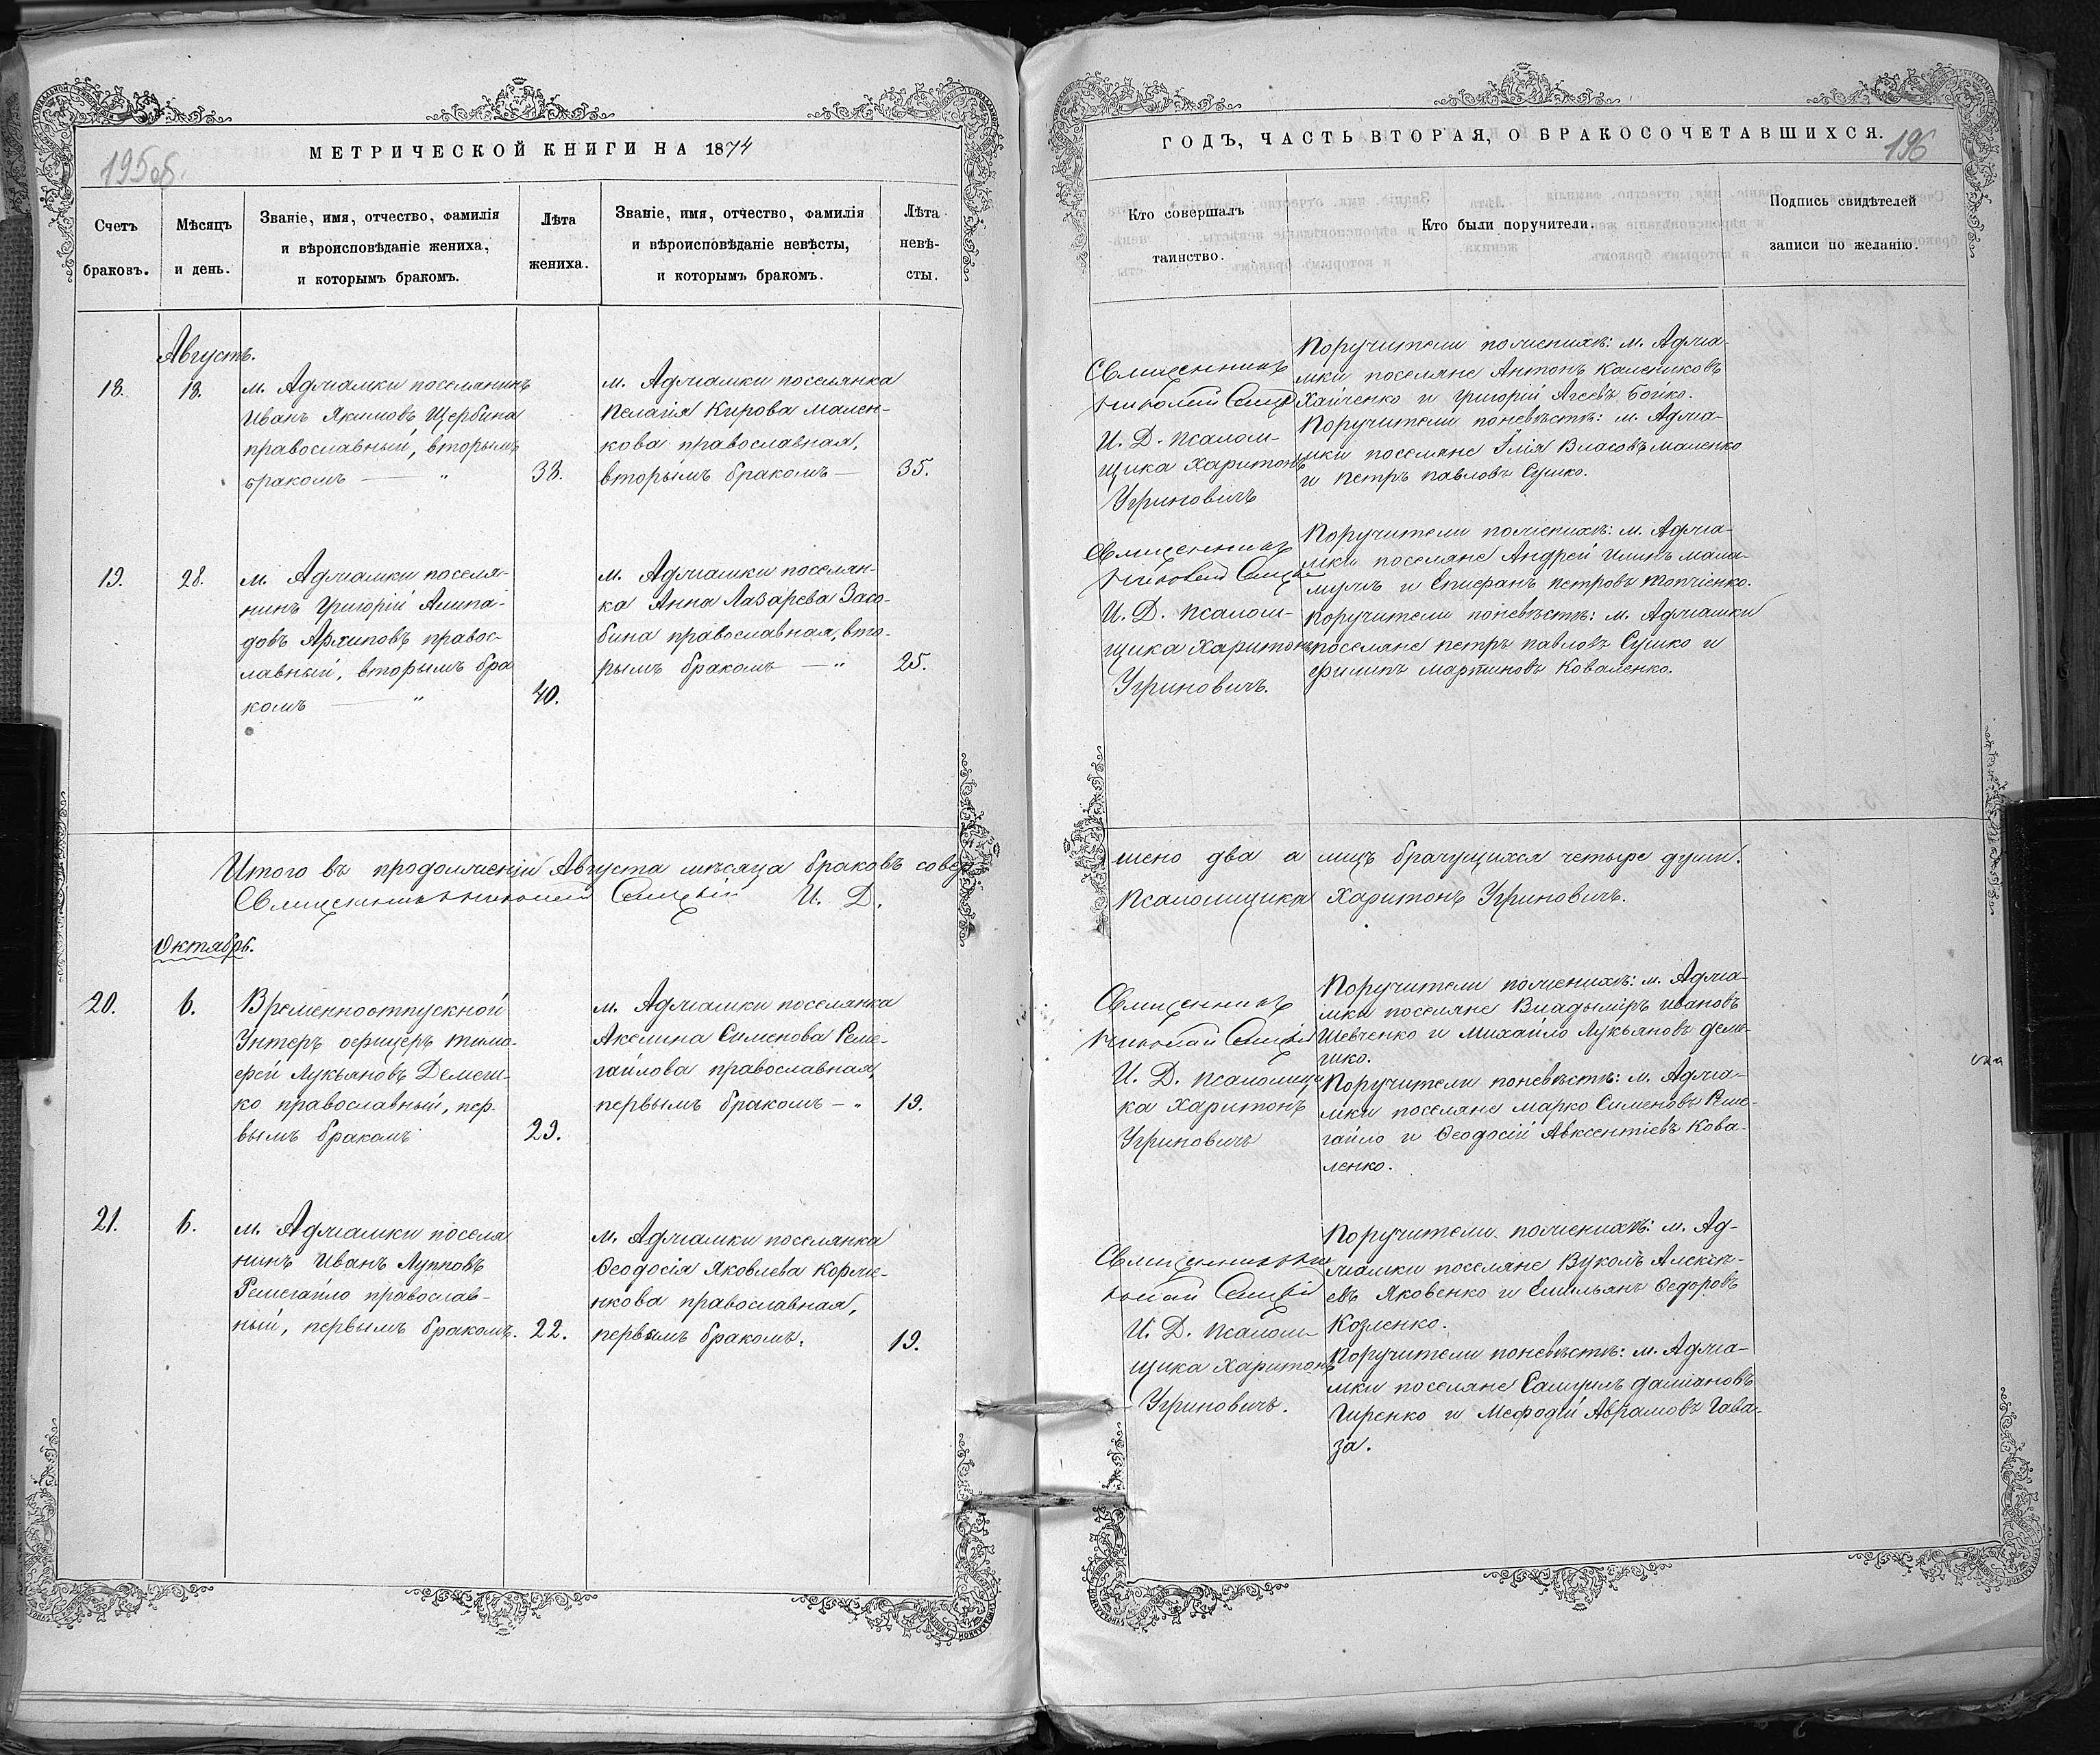 195об.
МЕТРИЧЕСКОЙ КНИГИ НА 1874
Счетъ
браковъ.
Мѣсяцъ
и день.
Званіе, имя, отчество, фамилія
и вѣроисповѣданіе жениха,
и которымъ бракомъ.
Лѣта
жениха.
Званіе, имя, отчество, фамилія
и вѣроисповѣданіе невѣсты,
и которымъ бракомъ.
Лѣта
невѣ-
сты.
Августъ.
18.
18.
м. Аджамки поселянинъ
Иванъ Якимовъ Щербина
православный, вторымъ
бракомъ — "
38.
м. Аджамки поселянка
Пелагія Кирова Мален-
кова православная,
вторымъ бракомъ —
35.
19.
28.
м. Аджамки поселя-
нинъ Григорій
Архиповъ правос-
лавный, вторымъ бра
комъ — "
40.
м. Аджамки поселян-
ка Анна Лазарева Засо-
бина православная, вто-
рымъ бракомъ — "
25.
Итого въ продолженіи Августа мѣсяца браковъ совер
Священникъ Николай И. Д.
Октябрь.
20.
6.
Временноотпускной
Унтеръ офицеръ Тимо-
фей Лукьяновъ Демеш-
ко православный, пер-
вымъ бракомъ
29.
м. Аджамки поселянка
Акелина Сименова Реме-
гайлова православная,
первымъ бракомъ — "
19.
21.
6.
м. Аджамки поселя
нинъ Иванъ Лупповъ
Ремегайло православ-
ный, первымъ бракомъ.
22.
м. Аджамки поселянка
Ѳеодосія Яковлева Корже-
нкова православная,
первымъ бракомъ.
19.
ГОДЪ, ЧАСТЬ ВТОРАЯ, О БРАКОСОЧЕТАВШИХСЯ.
196
Кто совершалъ
таинство.
Кто были поручители.
Подпись свидѣтелей
записи по желанію.
Священникъ
Николай
И. Д. Псалом-
щика Харитонъ
Угриновичъ
Поручители поженихѣ: м. Аджа-
мки поселяне Антонъ Калениковъ
Хайченко и Григорій Агеевъ Бойко.
Поручители поневѣстѣ: м. Аджа-
мки поселяне Илія Власовъ Маленко
и Петръ Павловъ Сушко.
Священникъ
Николай
И. Д. Псалом-
щика Харитонъ
Угриновичъ.
Поручители поженихѣ: м. Аджа-
мки поселяне Андрей Илинъ Мама-
и Епифанъ Петровъ Топчіенко.
Поручители поневѣстѣ: м. Аджамки
поселяне Петръ Павловъ Сушко и
Филипъ Мартиновъ Коваленко.
шено два а лицъ брачущихся четыре души.
Псаломщика Харитонъ Угриновичъ.
Священникъ
Николай
И. Д. Псаломщи
ка Харитонъ
Угриновичъ
Поручители поженихѣ: м. Аджа-
мки поселяне Владыміръ Ивановъ
Шевченко и Михайло Лукьяновъ Деме-
шко.
Поручители поневѣстѣ: м. Аджа-
мки поселяне Марко Сименовъ Реме-
гайло и Ѳеодосій Авксентіевъ Кова-
ленко.
Священникъ Ни
колай
И. Д. Псалом
щика Харитонъ
Угриновичъ.
Поручители поженихѣ: м. Ад-
жамки поселяне Вуколъ Алексѣ-
евъ Яковенко и Емильянъ Ѳедоровъ
Козленко.
Поручители поневѣстѣ: м. Аджа-
мки поселяне Самуилъ Даміановъ
Гиренко и Мефодій Абрамовъ Гава-
за.